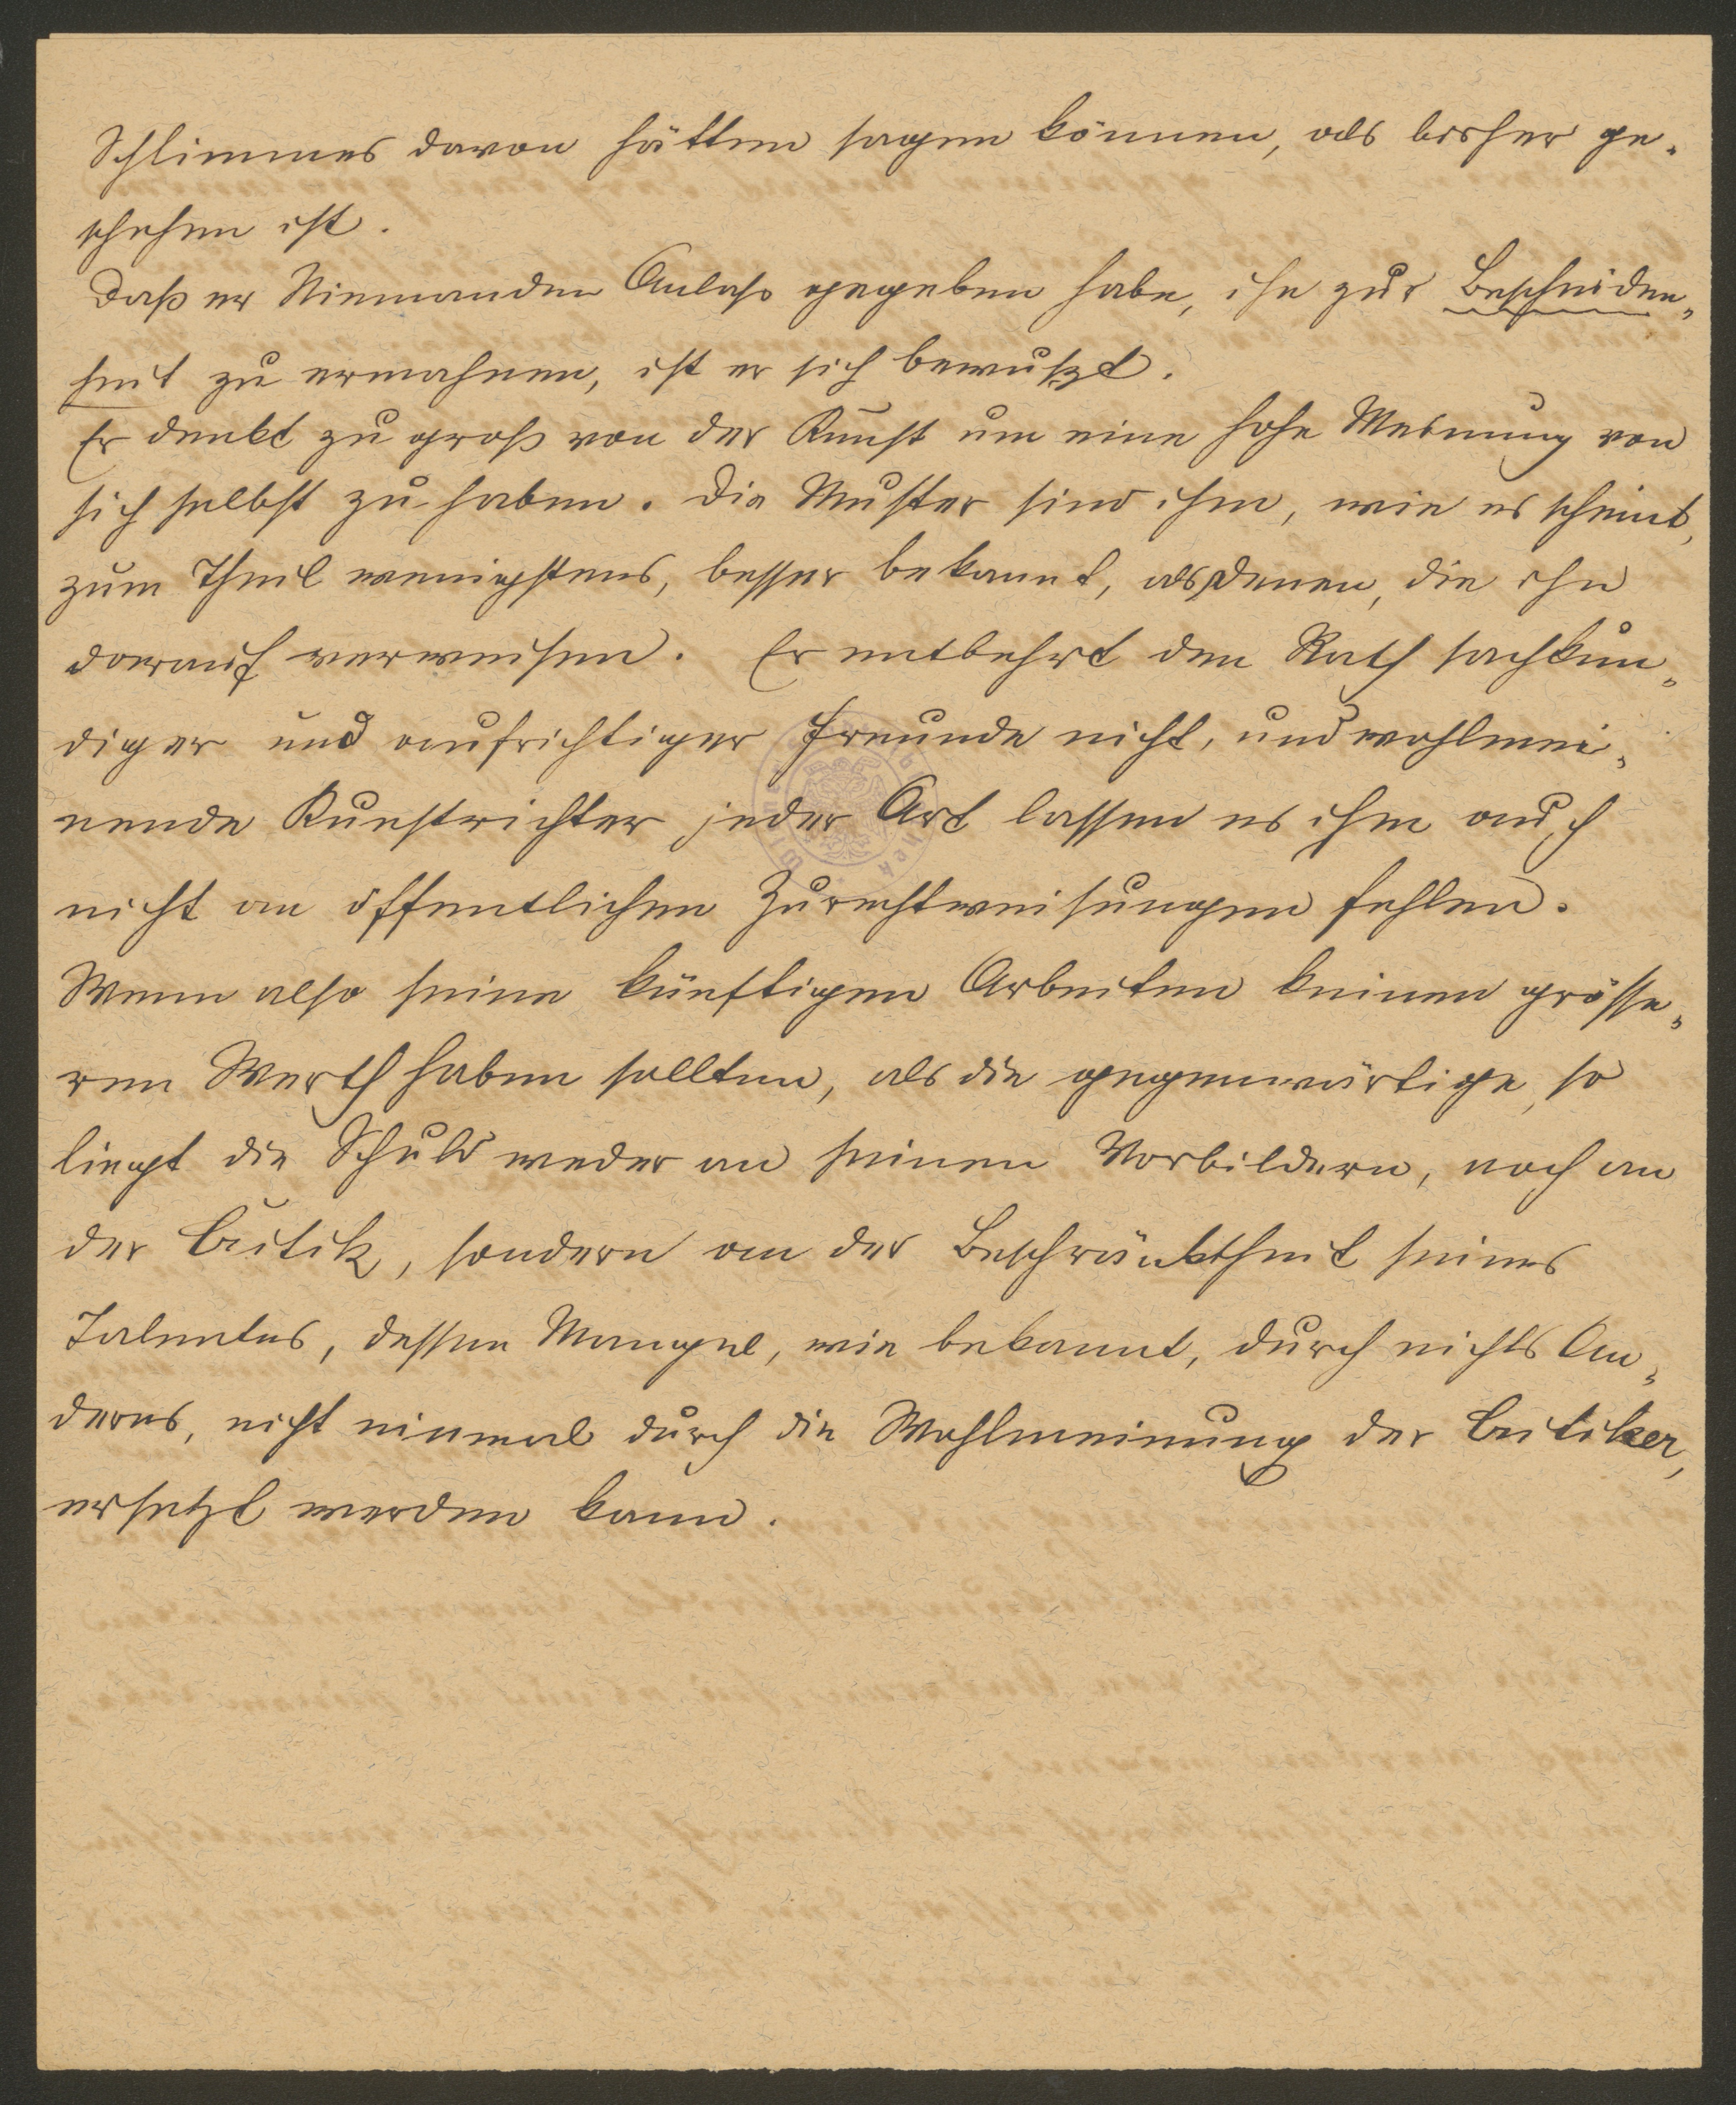 Schlimmes davon hätten sagen können, als bisher ge-
schehen ist.
Daß er Niemanden Anlaß gegeben habe, ihn zur Bescheiden-
heit zu ermahnen, ist er sich bewußt.
Er denkt zu groß von der Kunst um eine hohe Meinung von
sich selbst zu haben. Die Muster sind ihm, wie es scheint,
zum Theil wenigstens, besser bekannt, als denen, die ihn
darauf verweisen. Er entbehrt den Rath sachkun-
diger und aufrichtiger Freunde nicht, und wohlmei-
nende Kunstrichter jeder Art lassen es ihm auch
nicht an öffentlichen Zurechtweisungen fehlen.
Wenn also seine künftigen Arbeiten keinen grösse-
ren Werth haben sollten, als die gegenwärtige, so
liegt die Schuld weder an seinen Vorbildern, noch an
der Critik, sondern an der Beschränktheit seines
Talentes, dessen Mangel, wie bekannt, durch nichts An-
deres, nicht einmal durch die Wohlmeinung der Critiker,
ersetzt werden kann.